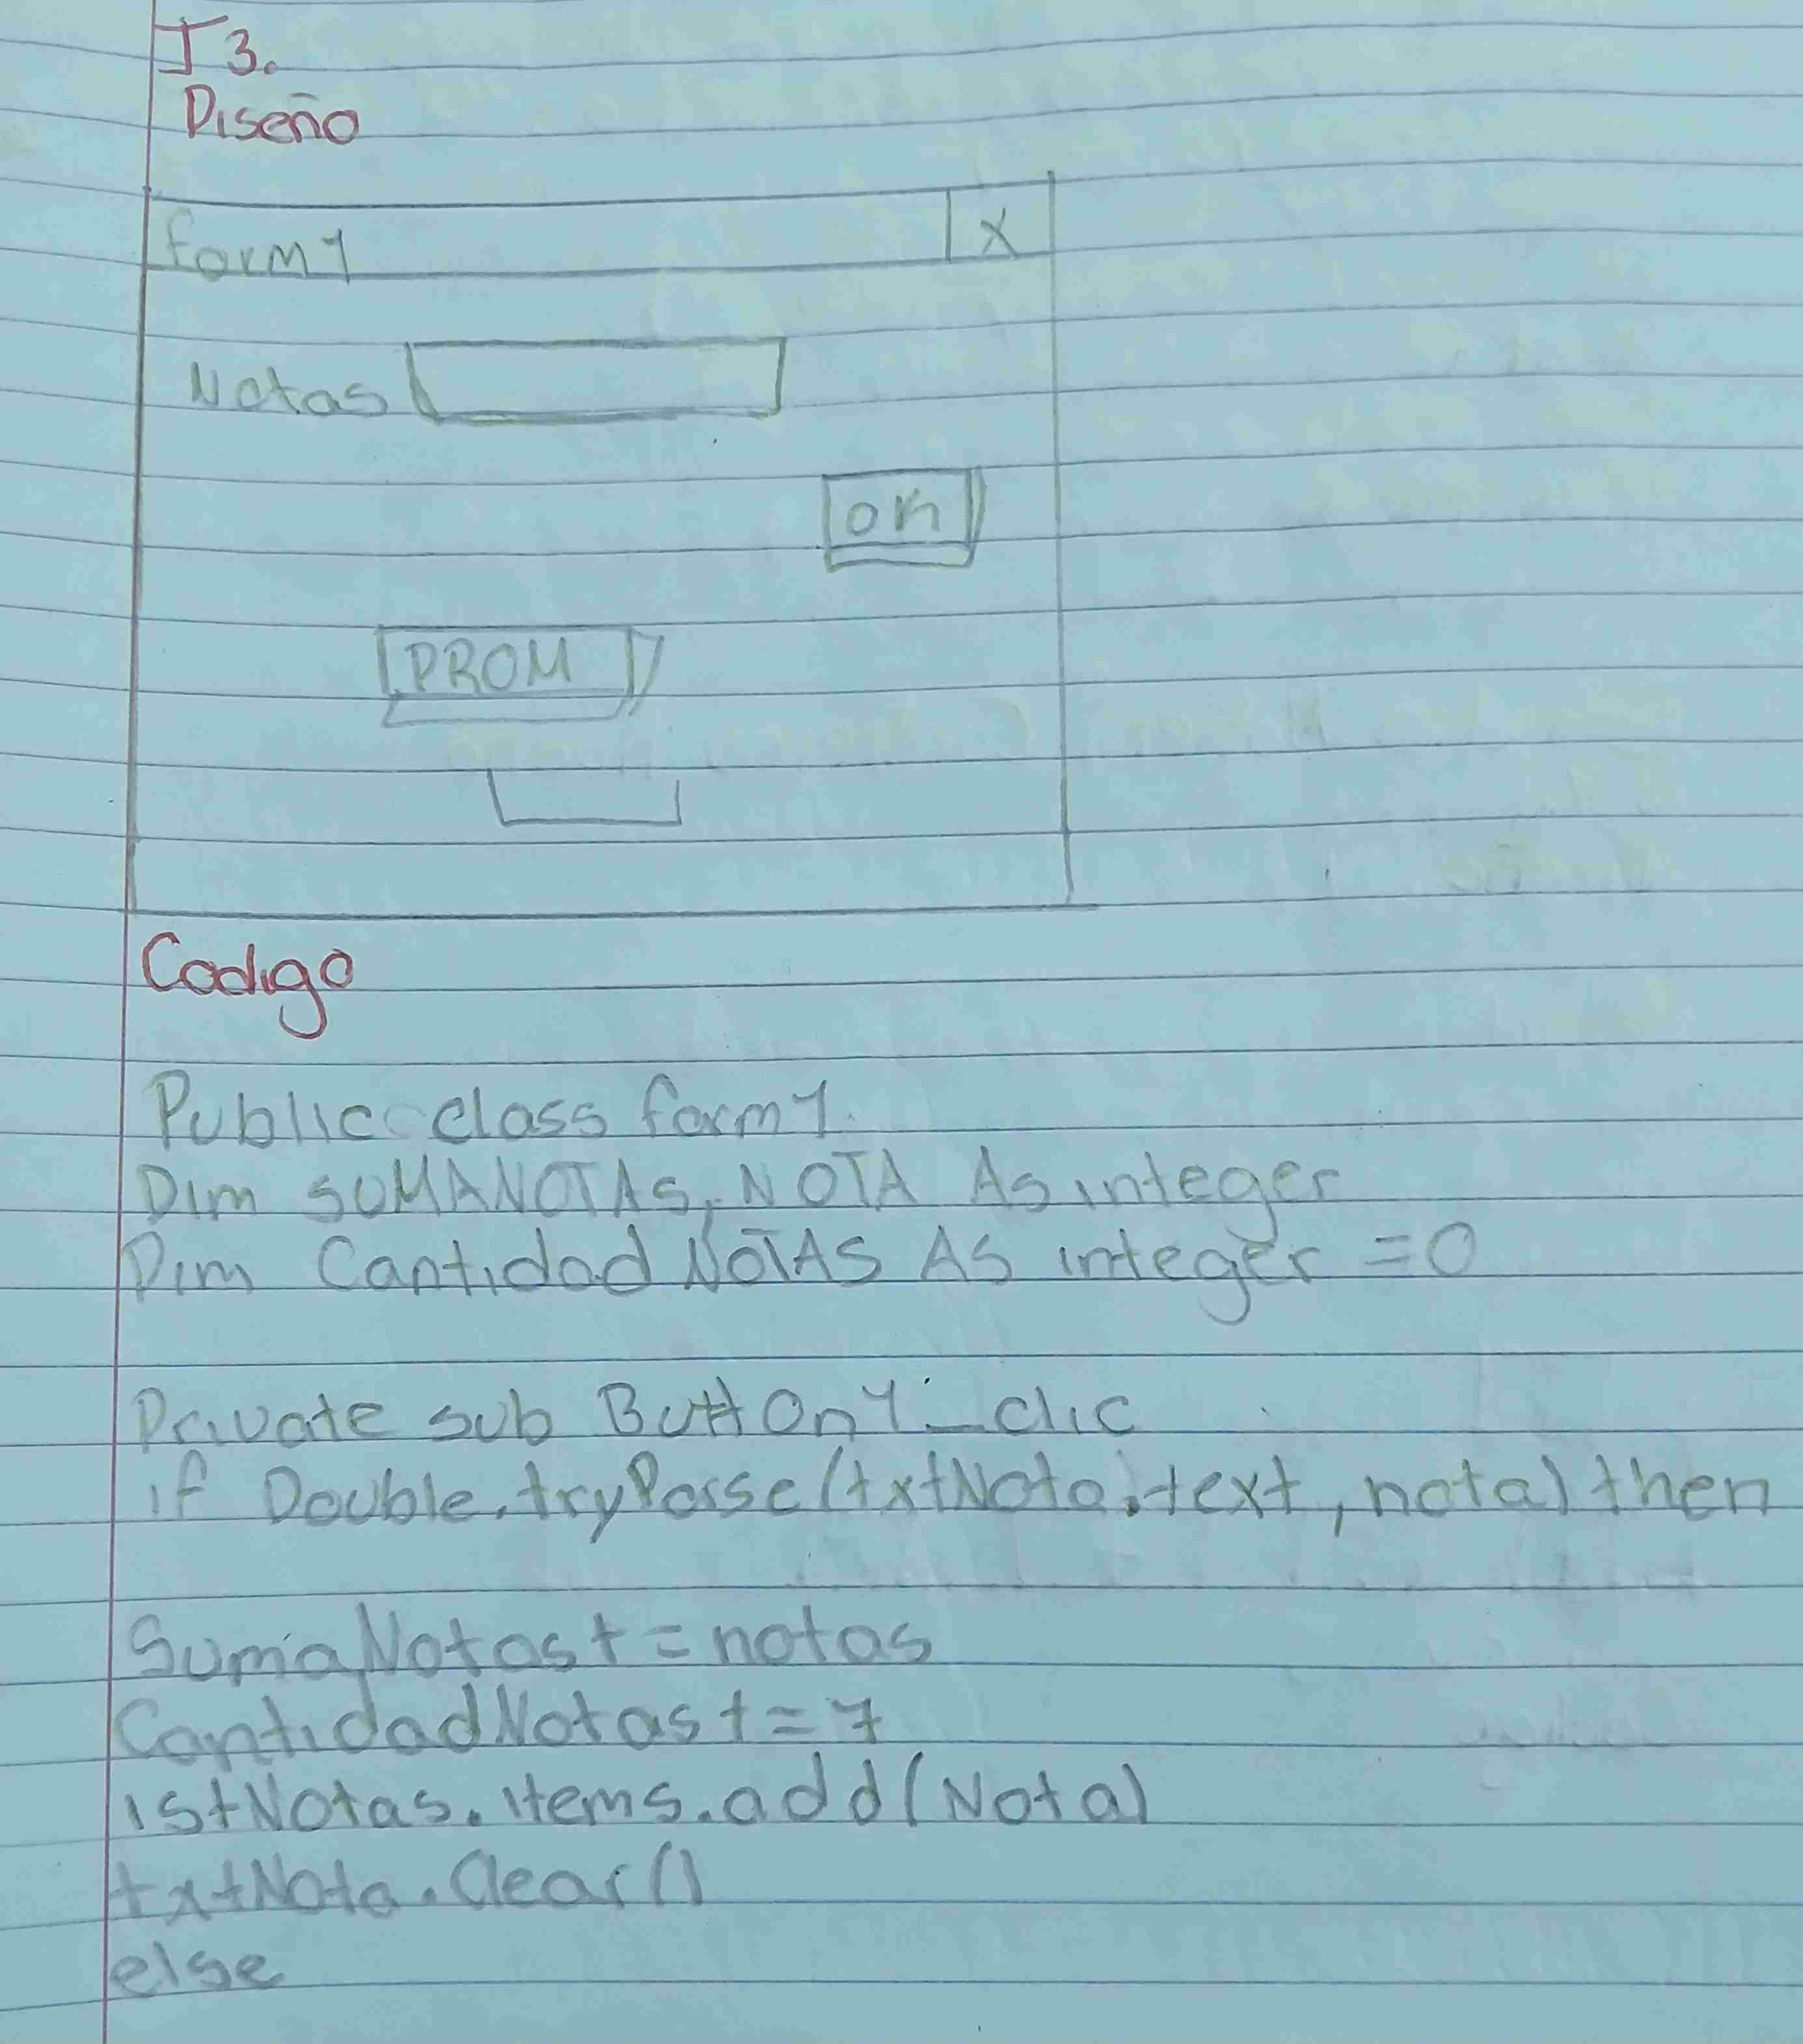 I3.
Diseño
form1 X
Notas
OK
PROM
Codigo
Public class form1.
Dim SUMANOTAS, NOTA As integer
Dim CantidadNOTAS AS integer =0
Private sub Button1_clic
if Double.tryParse(txtNota.text, nota) then
SumaNotas+=notas
CantidadNotas+=1
lstNotas.items.add(Nota)
txtNota.Clear()
else